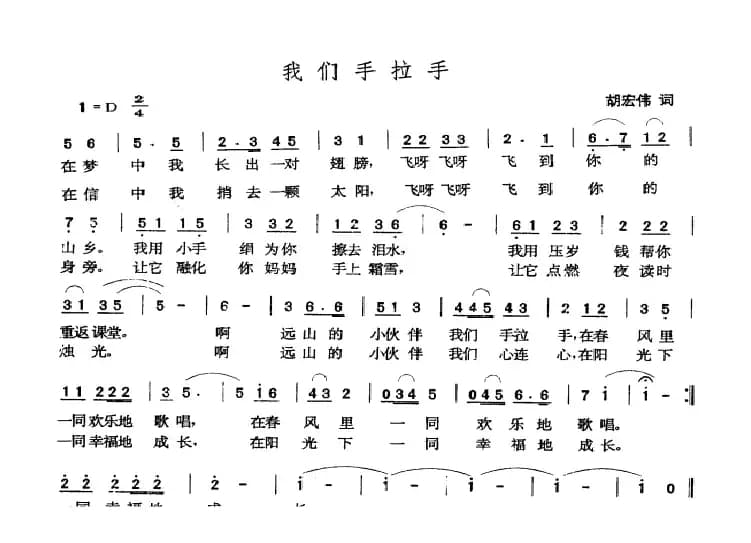 我们手拉手
1=D 2/4
胡宏伟 词
5 6 | 5. 5 | 2. 3 45 | 3 1 | 22 33 | 2. 1 | 6. 7 12 |
在梦 中我 长出一对 翅膀，飞呀飞呀 飞到你的
在信 中我 捎去一颗 太阳，飞呀飞呀 飞到你的
7 5 | 51 15 | 3 32 | 12 36 | 6 - | 61 23 | 2 22 |
山乡。我用小手 绢为你 擦去泪水， 我用压岁 钱帮你
身旁。让它融化 你妈妈 手上霜雪， 让它点燃 夜读时
31 35 | 5 - | 6 - | 3 6.6 | 51 3 | 445 43 | 2 12 | 3 5 |
重返课堂。 啊 远山的 小伙伴 我们手拉 手，在春 风里
烛光。 啊 远山的 小伙伴 我们心连 心，在阳 光下
11 222 | 35. | 5 i6 | 432 | 034 5 | 045 6.6 | 7 i | i - :||
一同欢乐地 歌唱， 在春 风里 一同 欢乐地 歌唱。
一同幸福地 成长， 在阳 光下 一同 幸福地 成长。
2 2 | 2 22 | 2 - | 2 - | i - | i - | i - | i 0 ||
一同 幸福地 成 长